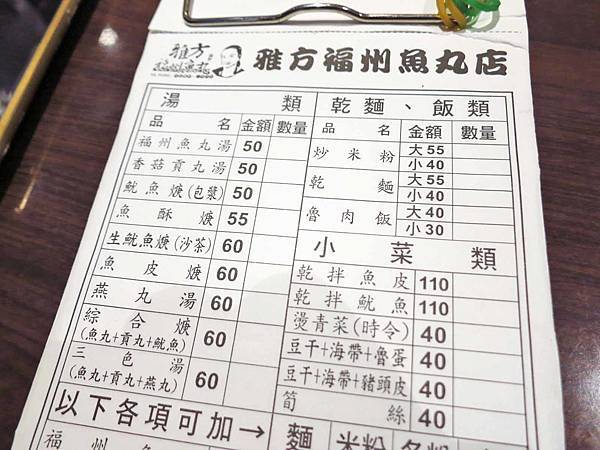 雅方
福州魚丸
雅方福州魚丸店
湯類
品名 金額 數量
福州魚丸湯 50
香菇貢丸湯 50
魷魚焿(包漿) 50
魚酥焿 55
生魷魚焿(沙茶) 60
魚皮焿 60
燕丸湯 60
綜合焿
(魚丸+貢丸+魷魚) 60
三色湯
(魚丸+貢丸+燕丸) 60
以下各項可加→
福州魚
乾麵、飯類
品名 金額 數量
炒米粉 大 55
小 40
乾麵 大 55
小 40
魯肉飯 大 40
小 30
小菜類
乾拌魚皮 110
乾拌魷魚 110
燙青菜(時令) 40
豆干+海帶+魯蛋 40
豆干+海帶+豬頭皮 40
筍絲 40
麵 米粉 冬粉